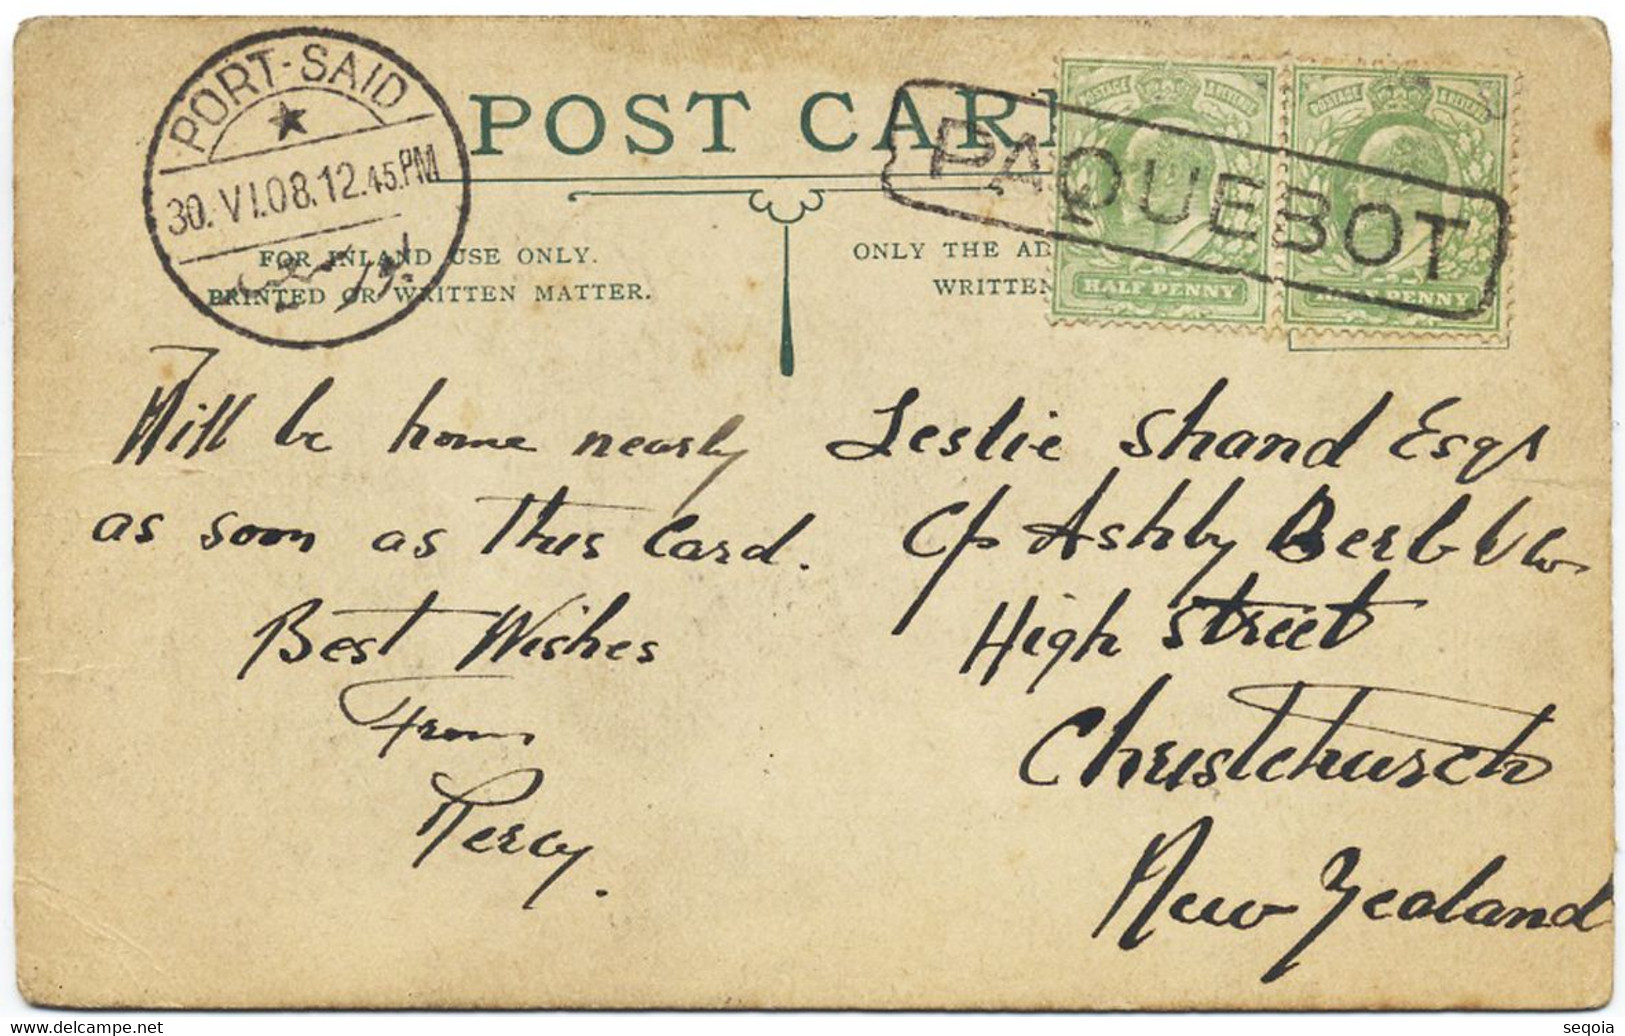 PORT-SAID
30.VI.08.12.45.PM
POST CAR
PAQUEBOT
POSTAGE & REVENUE
POSTAGE & REVENUE
HALF PENNY
HALF PENNY
FOR INLAND USE ONLY.
PRINTED OR WRITTEN MATTER.
ONLY THE AD
WRITTEN
Will be home nearly
as soon as This Card.
Best Wishes
From
Percy.
Leslie Shand Esqr
C/o Ashby Bergh & Co
High Street
Christchurch
New Zealand
www.delcampe.net
seqoia